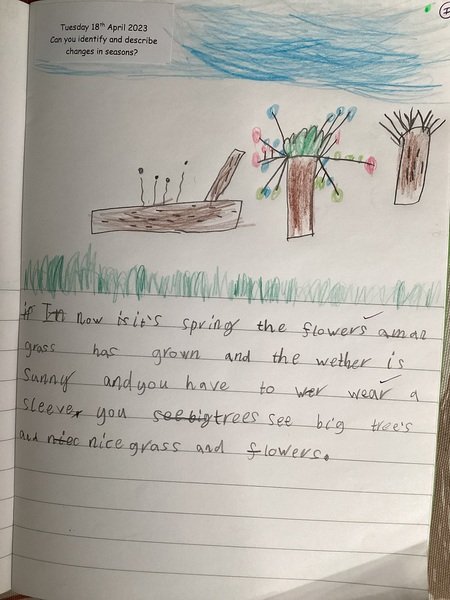 Tuesday 18th April 2023
Can you identify and describe
changes in seasons?
if In now is it's spring the flowers
grass has grown and the wether is
sunny and you have to wer wear a
sleever you see big trees see big tree's
and niec nice grass and flowers.